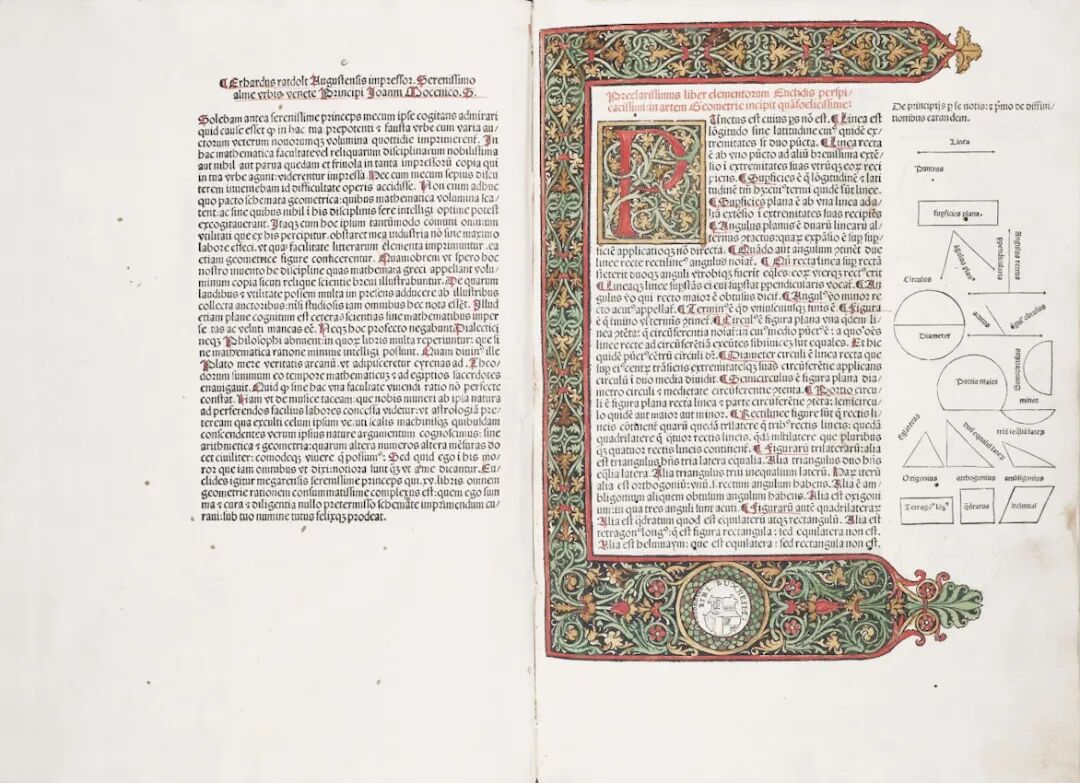 Erhardus ratdolt Augustensis impressor. Serenissimo
alme vrbis venete Principi Joanni Mocenico. S.
Solebam antea serenissime princeps mecum ipse cogitans admirari
quid cause esset ꝙ in hac tua prepotenti ⁊ fausta vrbe cum varia au-
ctorum veterum nouorumqꝫ volumina quottidie imprimerent. In
hac mathematica facultate vel reliquarum disciplinarum nobilissima
aut nihil aut parua quedam et friuola in tanta impressorū copia qui
in tua vrbe agunt: viderentur impressa. Hec cum mecum sepius discu-
terem inueniebam id difficultate operis accidisse. Non enim adhuc
quo pacto schemata geometrica: quibus mathematica volumina sca-
tent: ac sine quibus nihil i his disciplinis fere intelligi optime potest
excogitauerant. Itaqꝫ cum hoc ipsum tantūmodo comuni omnium
vtilitati que ex his percipitur. obstaret mea industria nō sine maximo
labore effeci. vt qua facilitate litterarum elementa imprimuntur. ea
etiam geometrice figure conficerentur. Quamobrem vt spero hoc
nostro inuento he discipline quas mathemata greci appellant volu-
minum copia sicuti relique scientie breui illustrabuntur. De quarum
laudibus ⁊ vtilitate possem multa in presens adducere ab illustribus
collecta auctoribus: nisi studiosis iam omnibus hec nota essēt. Illud
etiam plane cognitum est ceteras scientias sine mathematibus imper
fectas ac veluti mancas eē. Neqꝫ hoc profecto negabunt Dialectici
neqꝫ Philosophi abnuent: in quorꝫ libris multa reperiuntur: que si-
ne mathematica ratione minime intelligi possunt. Quam diuinꝰ ille
Plato mere veritatis arcanū. vt adipisceretur cyrenas ad. Theo-
dorum summum eo tempore mathematicuꝫ ⁊ ad egiptios sacerdotes
enauigauit. Quid ꝙ sine hac vna facultate viuendi ratio nō perfecte
constat. Nam vt de musice taceam: que nobis muneri ab ipsa natura
ad perferendos facilius labores concessa videtur: vt astrologiā pre-
teream qua exculti celum ipsum veluti scalis machinisqꝫ quibusdam
conscendentes verum ipsius nature argumentum cognoscimus: sine
arithmetica ⁊ geometria: quarum altera numeros altera mēsuras do-
cet ciuiliter: comodeqꝫ viuere ꝗ possumꝰ. Sed quid ego i his mo-
ror que iam omnibus vt dixi: notiora sunt ꝗꝫ vt a me dicantur. Eu-
clides igitur megarensis serenissime princeps qui. xv. libris omnem
geometrie rationem consummatissime complexus est: quem ego sum
ma ⁊ cura ⁊ diligentia nullo pretermisso schemate imprimendum cu-
raui: sub tuo numine tutus felixqꝫ prodeat.
Preclarissimus liber elementorum Euclidis perspi-
cacissimi: in artem Geometrie incipit quāfoelicissime:
Punctus est cuius ps nō est. Linea est
lōgitudo sine latitudine cuiꝰ quidē ex-
tremitates sūt duo pūcta. Linea recta
ē ab vno pūcto ad aliū breuissima extē-
sio i extremitates suas vtrūqꝫ eorꝫ reci
piens. Supficies ē ꝗ lōgitudinē ⁊ lati
tudinē tm̄ hꝫ: cuiꝰ termi quidē sūt linee.
Supficies plana ē ab vna linea ad a-
liā extēsio i extremitates suas recipiēs
Angulus planus ē duarū linearū al-
ternus ꝯtactus: quaꝝ expāsio ē sup sup-
ficiē applicatioqꝫ nō directa. Quādo aut angulum ꝯtinēt due
linee recte rectilineꝰ angulus noiaṫ. Qn̄ recta linea sup rectā
steterit duoqꝫ anguli vtrobiqꝫ fuerīt eqles: eoꝝ vterqꝫ rectꝰ erit
Lineaqꝫ linee supstās ei cui supstat ppendicularis vocaṫ. An-
gulus vo qui recto maior ē obtusus diciṫ. Angulꝰ vo minor re-
cto acutꝰ appellaṫ. Terminꝰ ē qd vniuscuiusqꝫ finis ē. Figura
ē ꝗ tmino vl terminis ꝯtineṫ. Circulꝰ ē figura plana vna qdem li-
nea ꝯtēta: ꝗ circūferentia noiaṫ: in cuiꝰ medio pūctꝰ ē: a quo oēs
linee recte ad circūferētiā exeūtes sibiinuicē sut equales. Et hic
quidē pūctꝰ cētrū circuli dr̄. Diameter circuli ē linea recta que
sup eiꝰ centꝝ trāsiens extremitatesqꝫ suas circūferētie applicans
circulū i duo media diuidit. Semicirculus ē figura plana dia-
metro circuli ⁊ medietate circūferentie ꝯtenta. Portio circu-
li ē figura plana recta linea ⁊ parte circūferētie ꝯtēta: semicircu-
lo quidē aut maior aut minor. Rectilinee figure sūt ꝗ rectis li-
neis cōtinent quarū quedā trilatere ꝗ tribꝰ rectis lineis: quedā
quadrilatere ꝗ quatuor rectis lineis. qdā mltilatere que pluribus
ꝗꝫ quatuor rectis lineis continent. Figurarū trilaterarū: alia
est triangulus hn̄s tria latera equalia. Alia triangulus duo hn̄s
eqlia latera. Alia triangulus triū inequalium laterū. Haꝝ iteꝝ
alia est orthogoniū: vnū .i. rectum angulum habens. Alia ē am-
bligonium aliquem obtusum angulum habens. Alia est oxigoni
um: in qua tres anguli sunt acuti. Figurarū autē quadrilateraꝝ
Alia est qdratum quod est equilaterū atqꝫ rectangulū. Alia est
tetragonꝰ longꝰ: ꝗ est figura rectangula: sed equilatera non est.
Alia est helmuaym: que est equilatera: sed rectangula non est.
P
De principijs p se notis: ⁊ pmo de diffini-
tionibus earundem.
Linea
Punctus
supficies plana.
angulus planꝰ
ppendicularis
Angulus rectus
Circulus
Diameter
acutus
agꝰ obtusus
Portio maior
Semicirculus
minor
eqlaterus
duū equaliū lateꝝ
triū īeqliū lateꝝ
Oxigonius
orthogonius
ambligonius
Tetragonꝰ lōgꝰ
qdratus
helmuaī